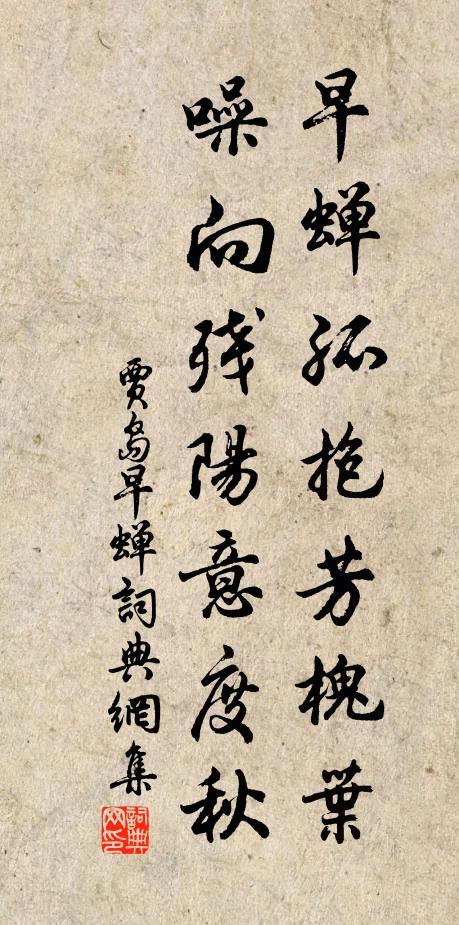 早蝉孤抱芳槐葉
噪向残陽意度秋
賈島早蝉詞典網集
詞典网印